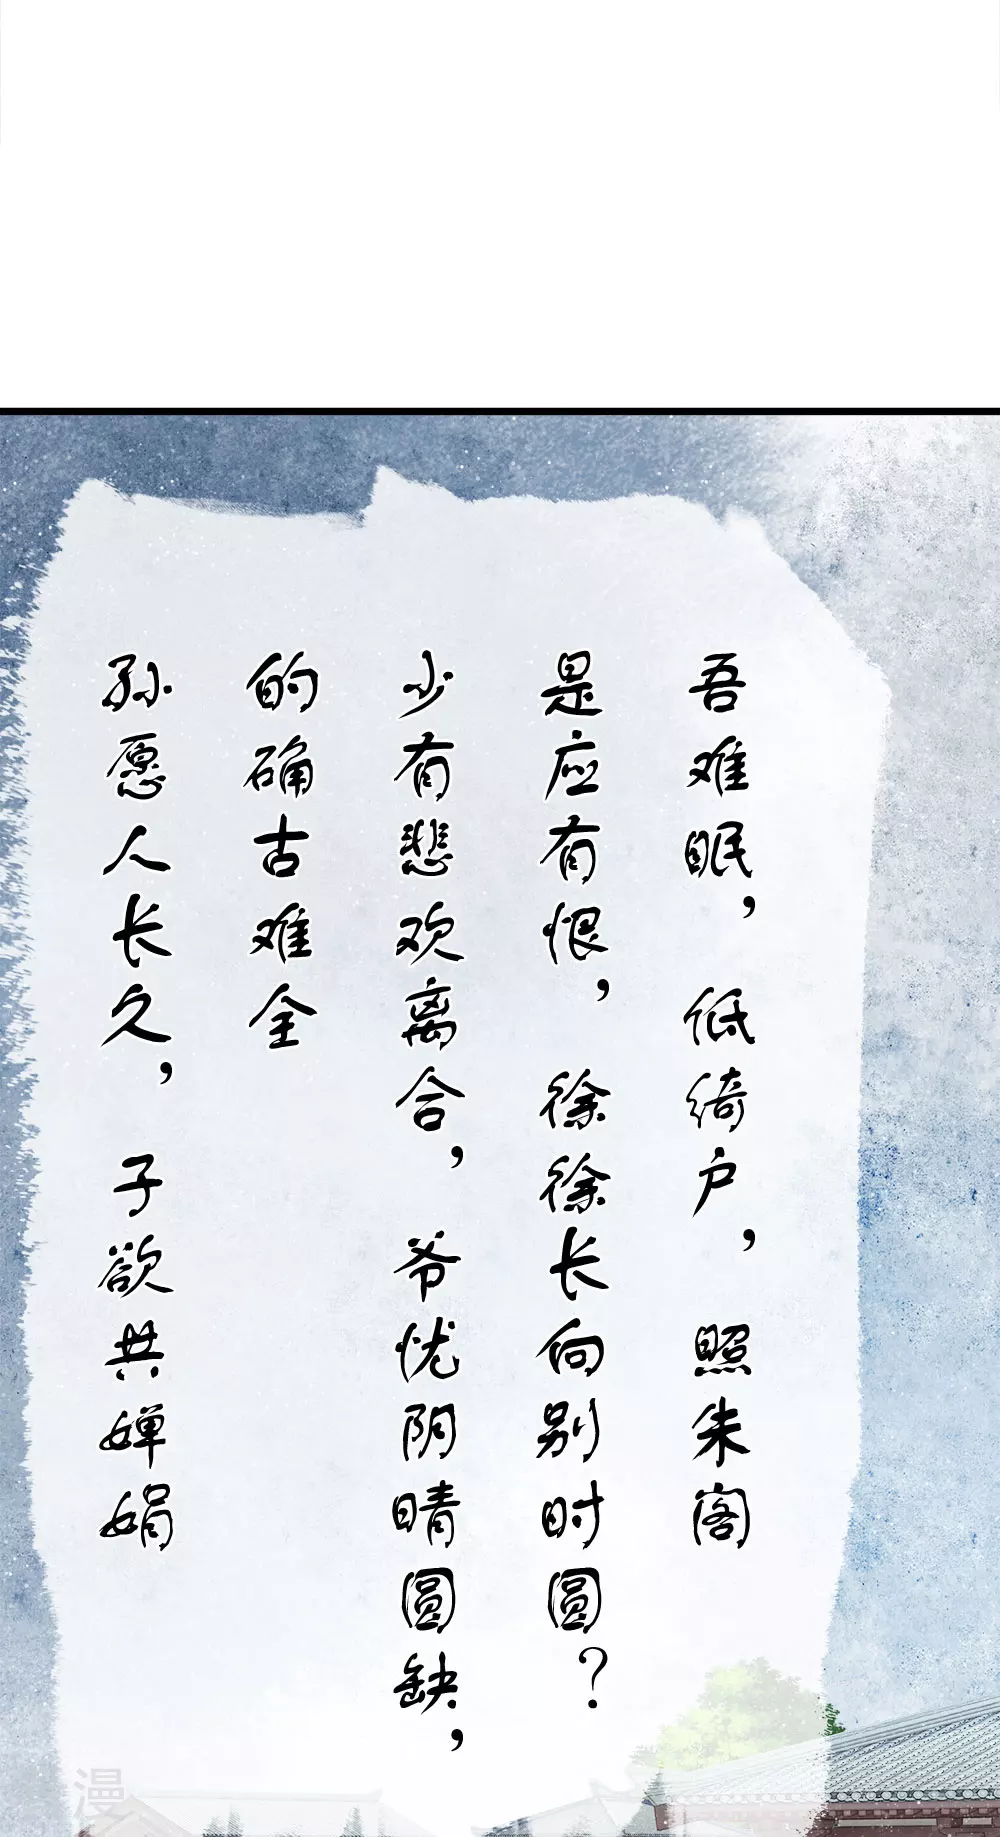 吾难眠，低绮户，照朱阁
是应有恨，徐徐长向别时圆？
少有悲欢离合，爷忧阴晴圆缺，
的确古难全
孙愿人长久，子欲共婵娟
漫